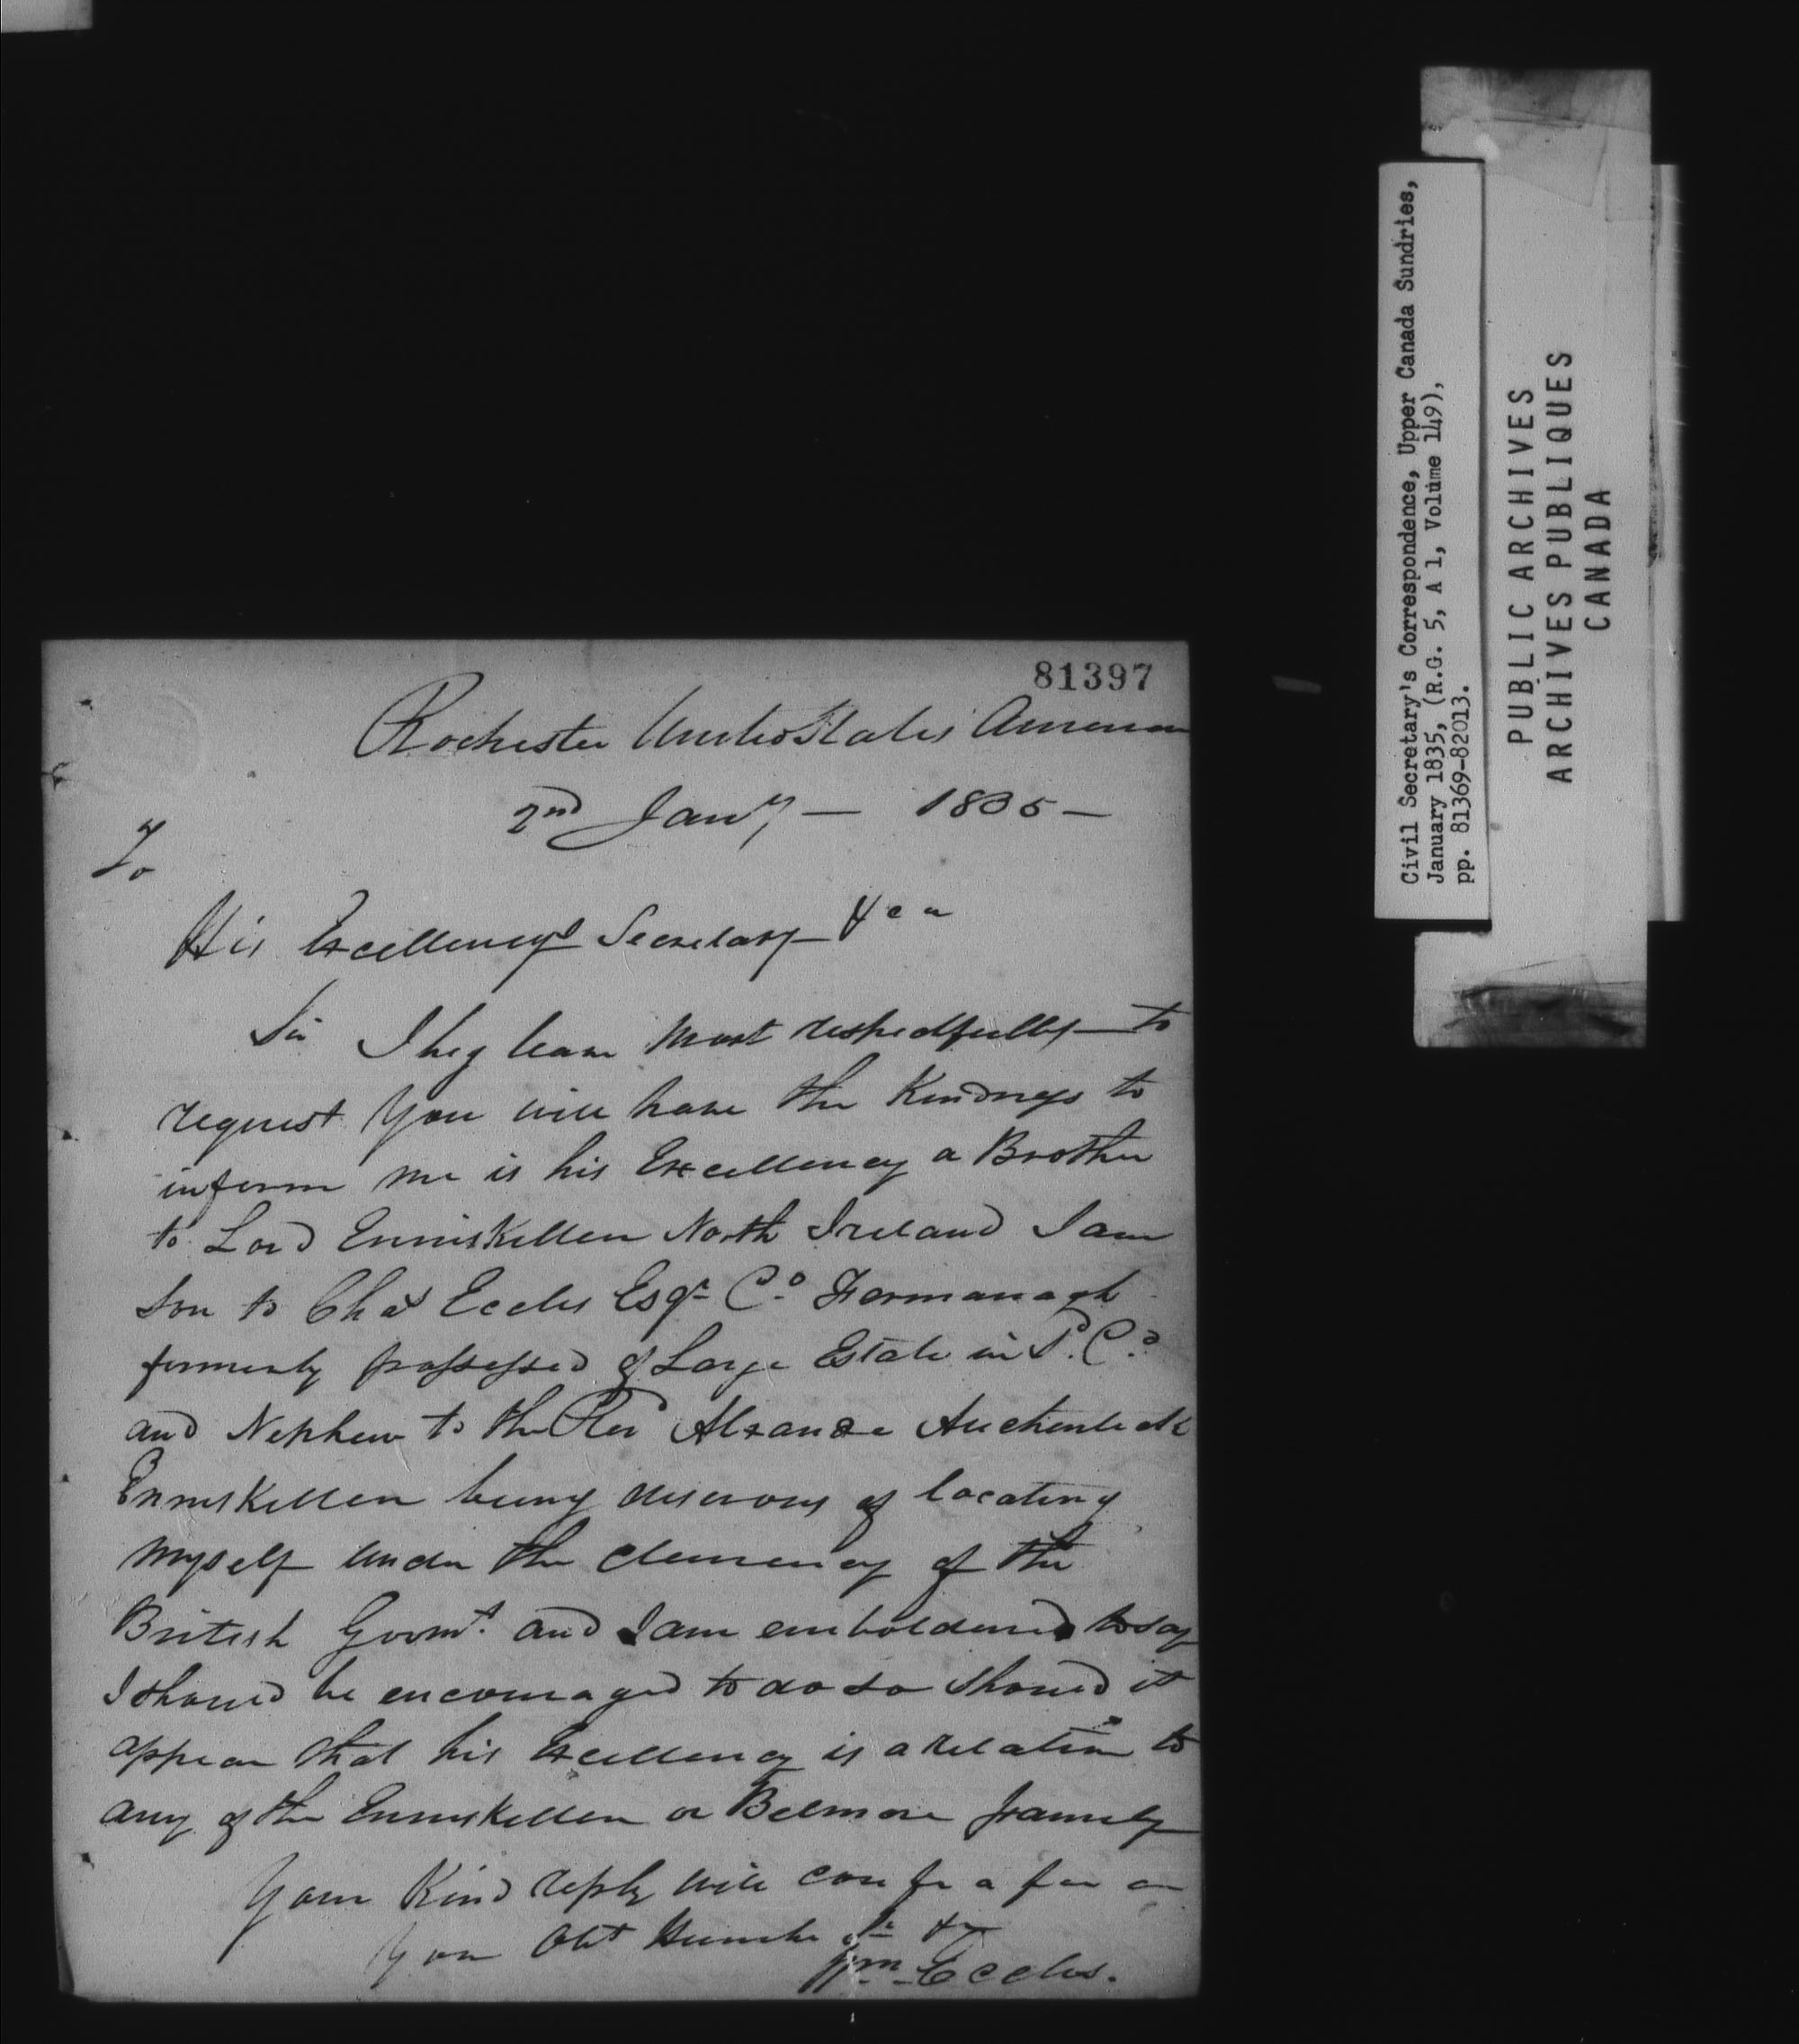 81397
Rochester United States America
2nd Jany — 1835 —
To
His Excellencys Secretary &ca
Sir I beg leave most respectfully to
request you will have the Kindness to
inform me is his Excellency a Brother
to Lord Enniskillen North Ireland I am
Son to Chas Eccles Esqr Co. Fermanagh
formerly possessed of Large Estate in Sd. Co.
and Nephew to the Revd Alexander Auchenleck
Enniskillen being desirous of locating
myself under the clemency of the
British Govmt. and I am emboldened to say
I should be encouraged to do so should it
appear that his Excellency is a relation to
any of the Enniskillen or Belmore family
Your Kind reply will confer a favor
Your Obt Humble St &c
Wm Eccles.
Civil Secretary's Correspondence, Upper Canada Sundries,
January 1835, (R.G. 5, A 1, Volume 149),
pp. 81369-82013.
PUBLIC ARCHIVES
ARCHIVES PUBLIQUES
CANADA